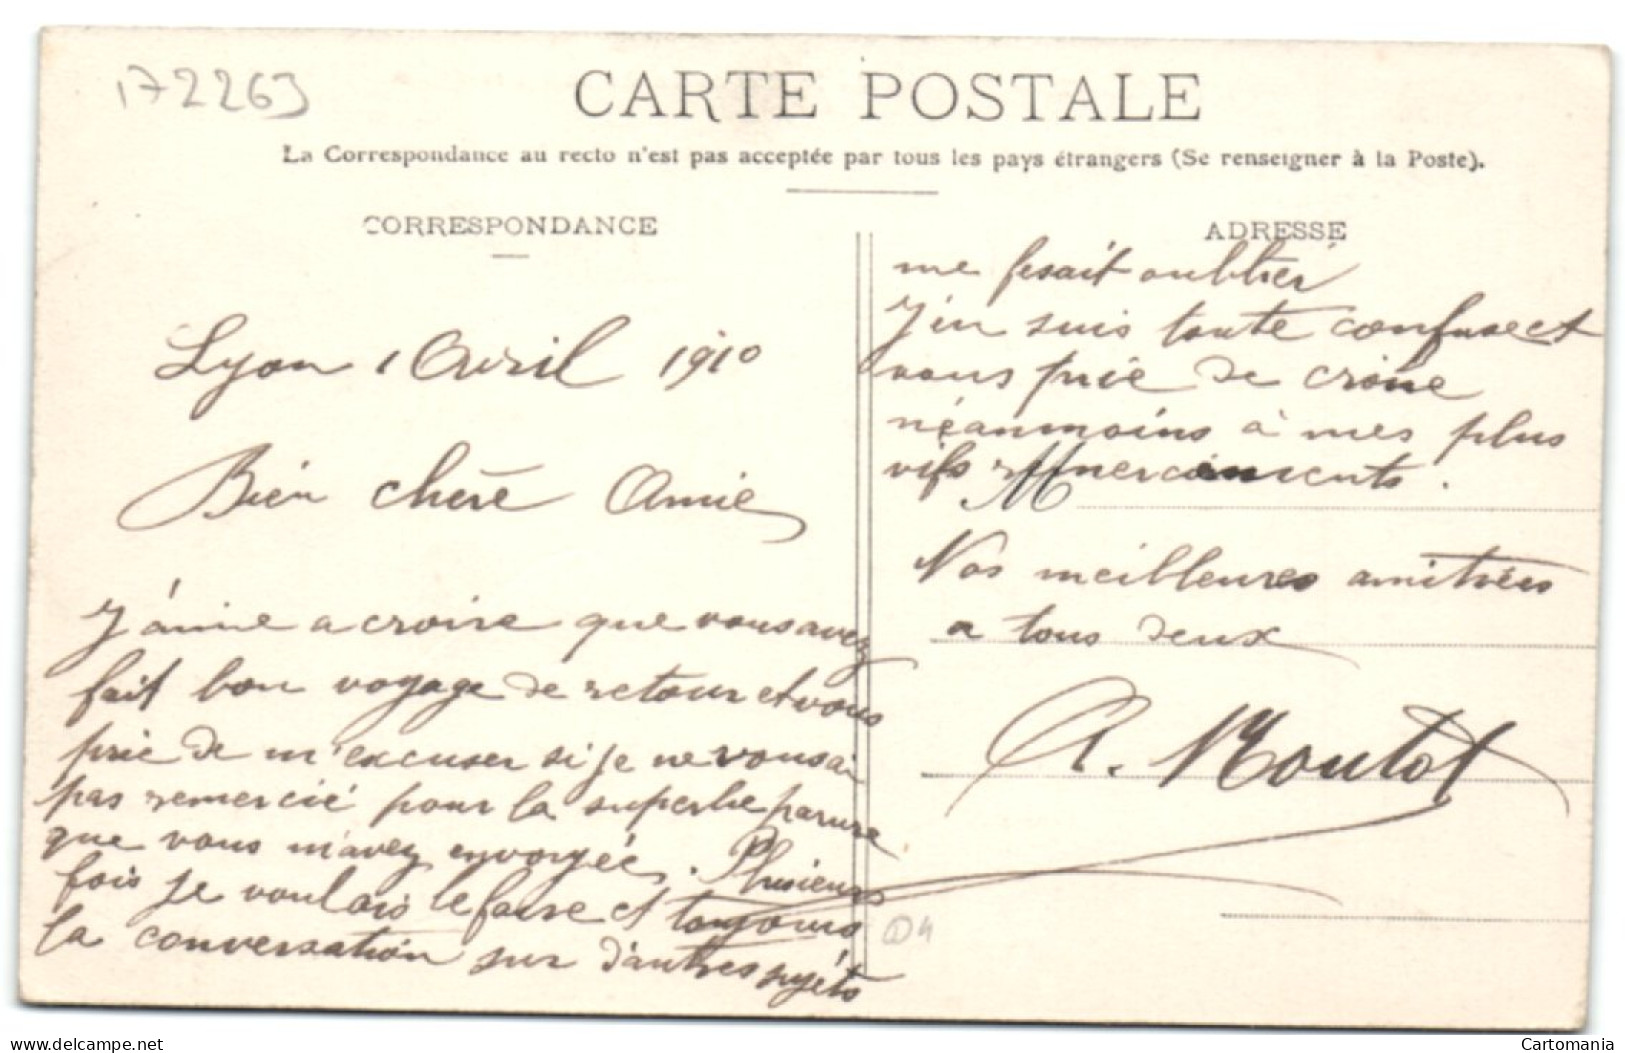 172263
CARTE POSTALE
La Correspondance au recto n'est pas acceptée par tous les pays étrangers (Se renseigner à la Poste).
CORRESPONDANCE
Lyon 1 Avril 1910
Bien chère Amie
J'aime a croire que vous avez
fait bon voyage de retour et vous
prie de m'excuser si je ne vous ai
pas remercié pour la superbe parure
que vous m'avez envoyée. Plusieurs
fois je voulais le faire et toujours
la conversation sur d'autres sujets
ADRESSE
me fesait oublier
J'en suis toute confuse et
vous prie de croire
néanmoins à mes plus
vifs remerciements.
M
Nos meilleures amitiées
a tous deux
A. Moutot
D4
www.delcampe.net
Cartomania